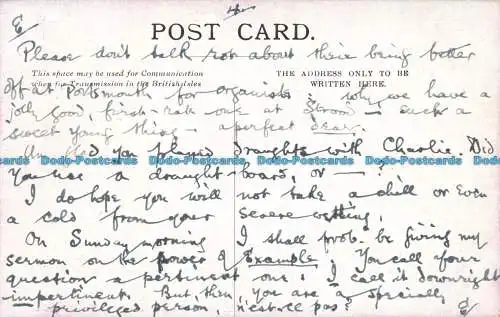 E
POST CARD.
Please don't talk rot about their being better
This space may be used for Communication
when for Transmission in the British Isles
THE ADDRESS ONLY TO BE
WRITTEN HERE.
off at Portsmouth for organists: why we have a
jolly good, first-rate one at Stroud – such a
sweet young thing – a perfect dear.
glad you played draughts with Charlie. Did
Dodo-Postcards Dodo-Postcards Dodo-Postcards Dodo-Postcards Dodo-Postcards Dodo-Postcards
you use a draught-board, or –
I do hope you will not take a chill or even
a cold from your severe wetting.
On Sunday morning I shall prob. be giving my
sermon on the power of Example. You call your
question a pertinent one: I call it downright
impertinent. But, then, you are a specially
privileged person, n'est-ce pas?